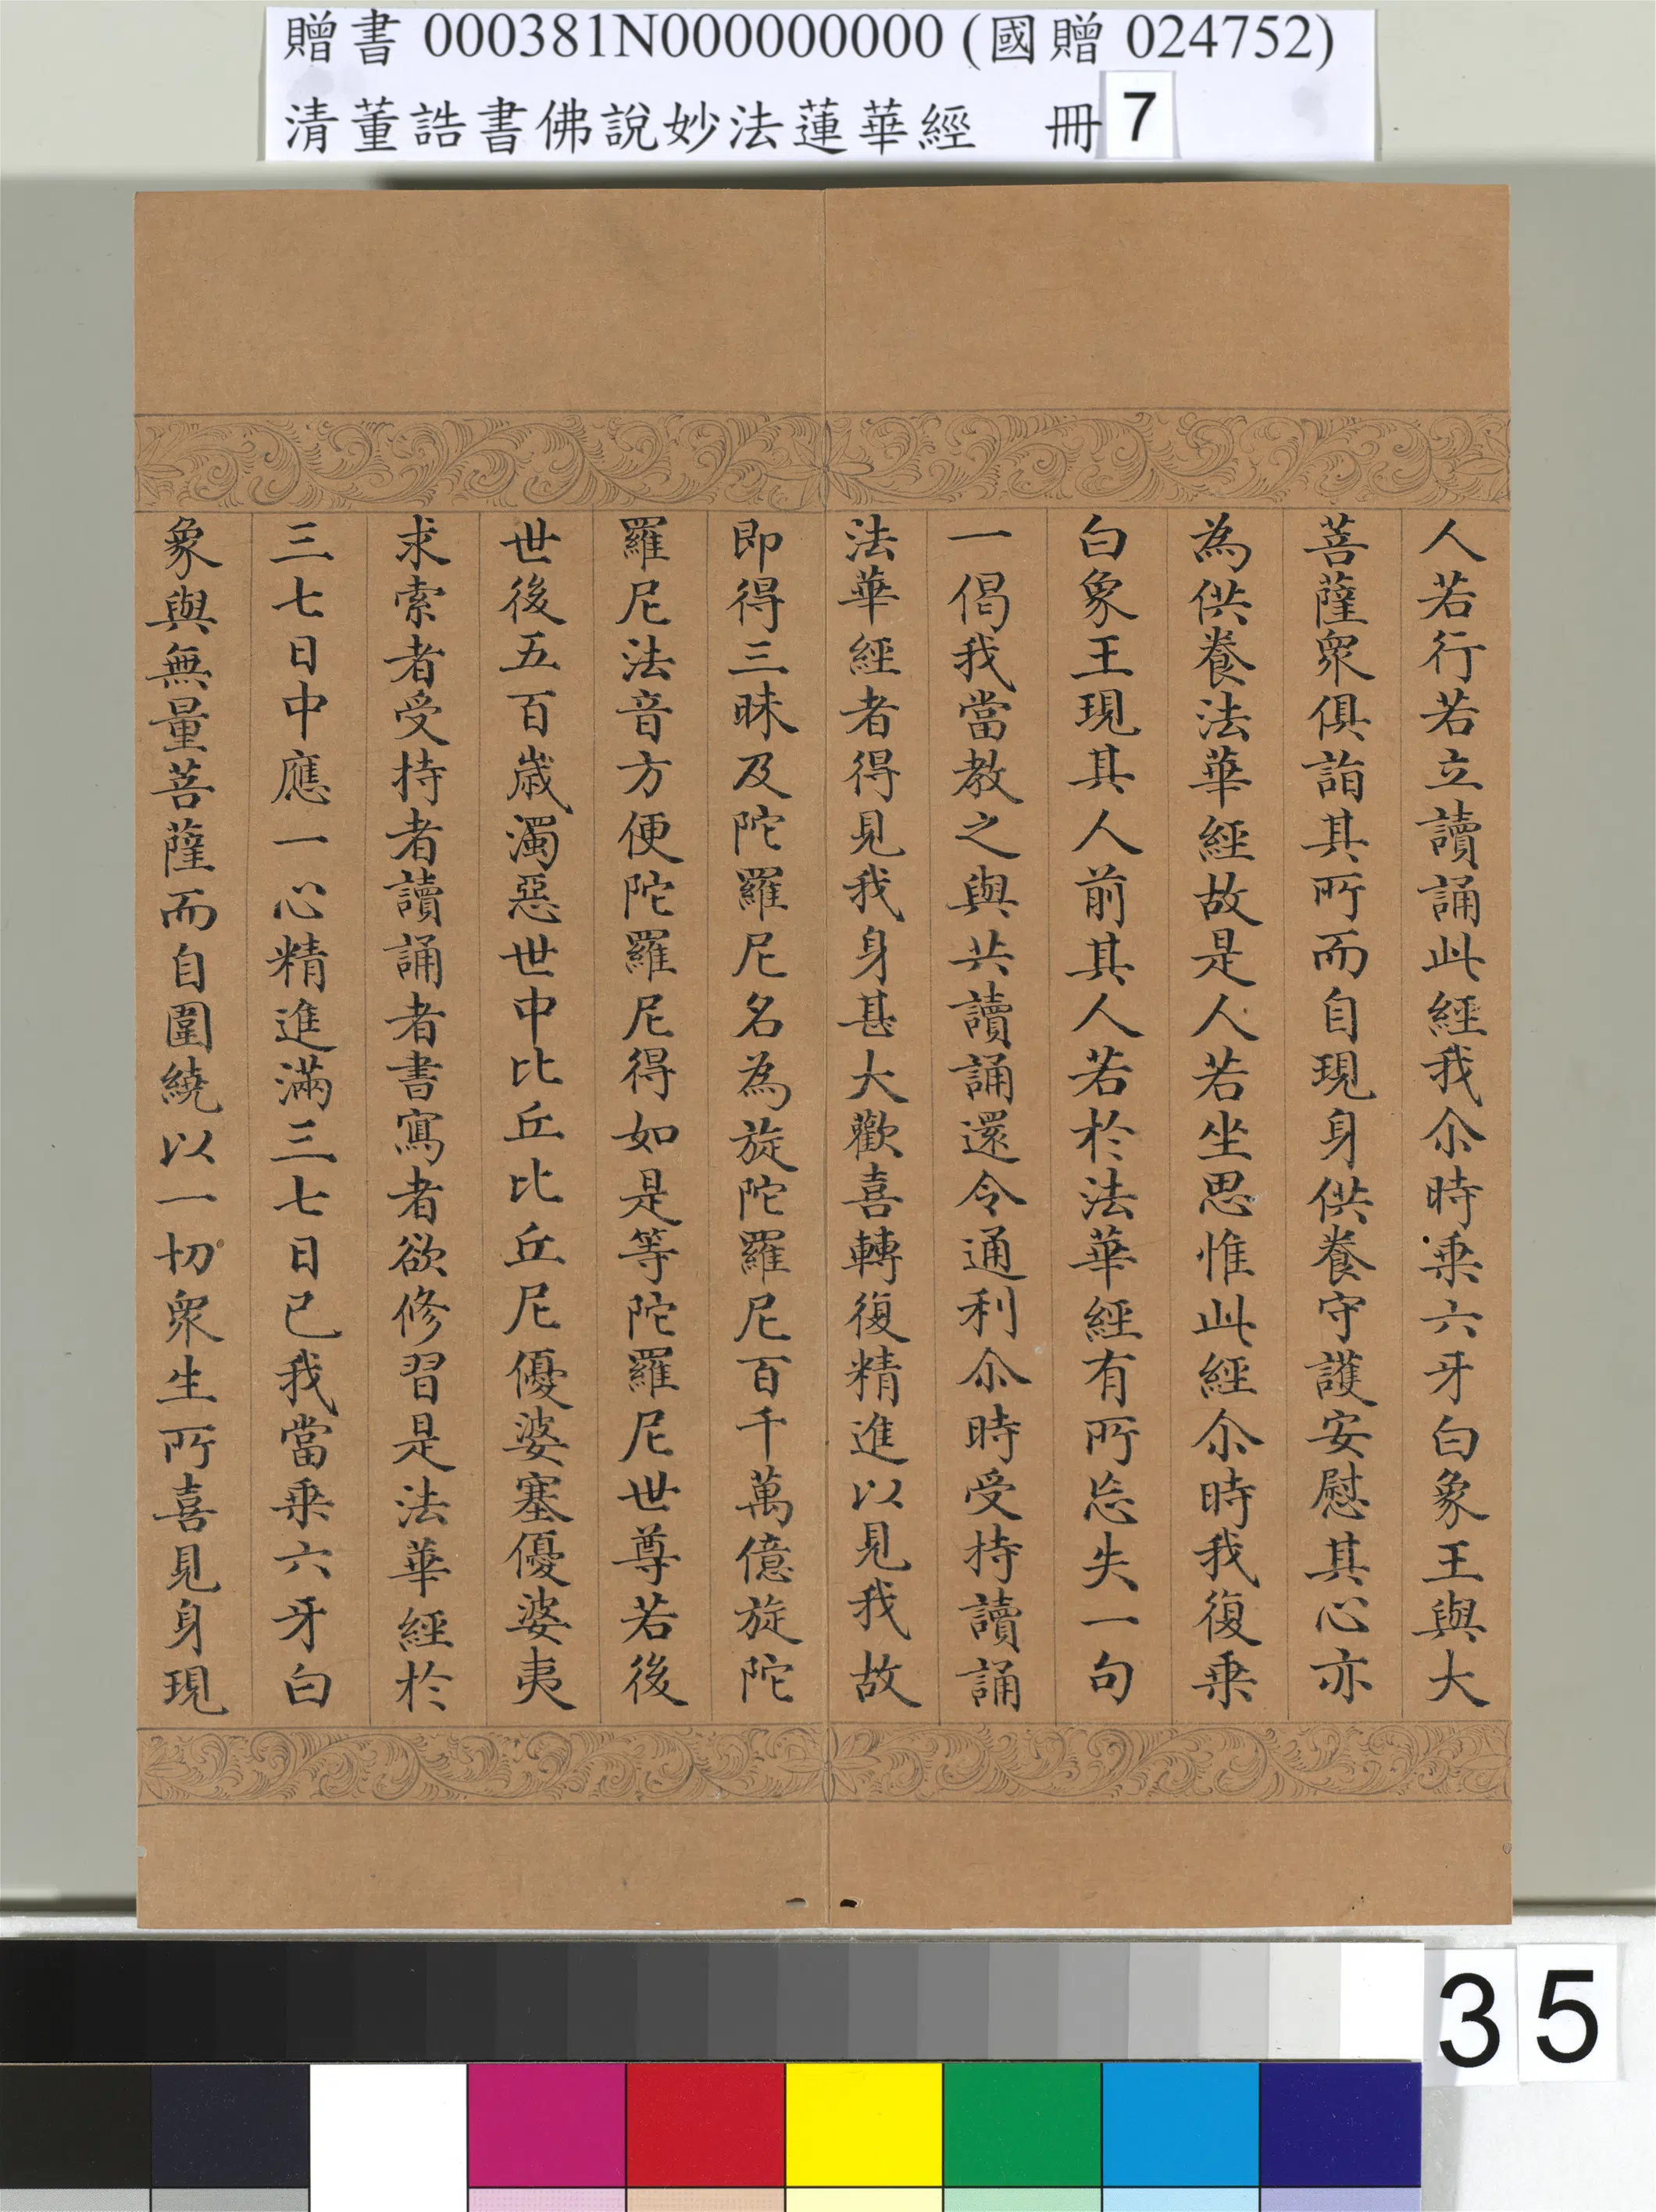 贈書 000381N000000000 (國贈 024752)
清董誥書佛說妙法蓮華經　冊 7
人若行若立讀誦此經我尒時乗六牙白象王與大
菩薩眾俱詣其所而自現身供養守護安慰其心亦
為供養法華經故是人若坐思惟此經尒時我復乗
白象王現其人前其人若於法華經有所忘失一句
一偈我當教之與共讀誦還令通利尒時受持讀誦
法華經者得見我身甚大歡喜轉復精進以見我故
即得三昧及陀羅尼名為旋陀羅尼百千萬億旋陀
羅尼法音方便陀羅尼得如是等陀羅尼世尊若後
世後五百歲濁惡世中比丘比丘尼優婆塞優婆夷
求索者受持者讀誦者書寫者欲修習是法華經於
三七日中應一心精進滿三七日已我當乗六牙白
象與無量菩薩而自圍繞以一切眾生所喜見身現
35